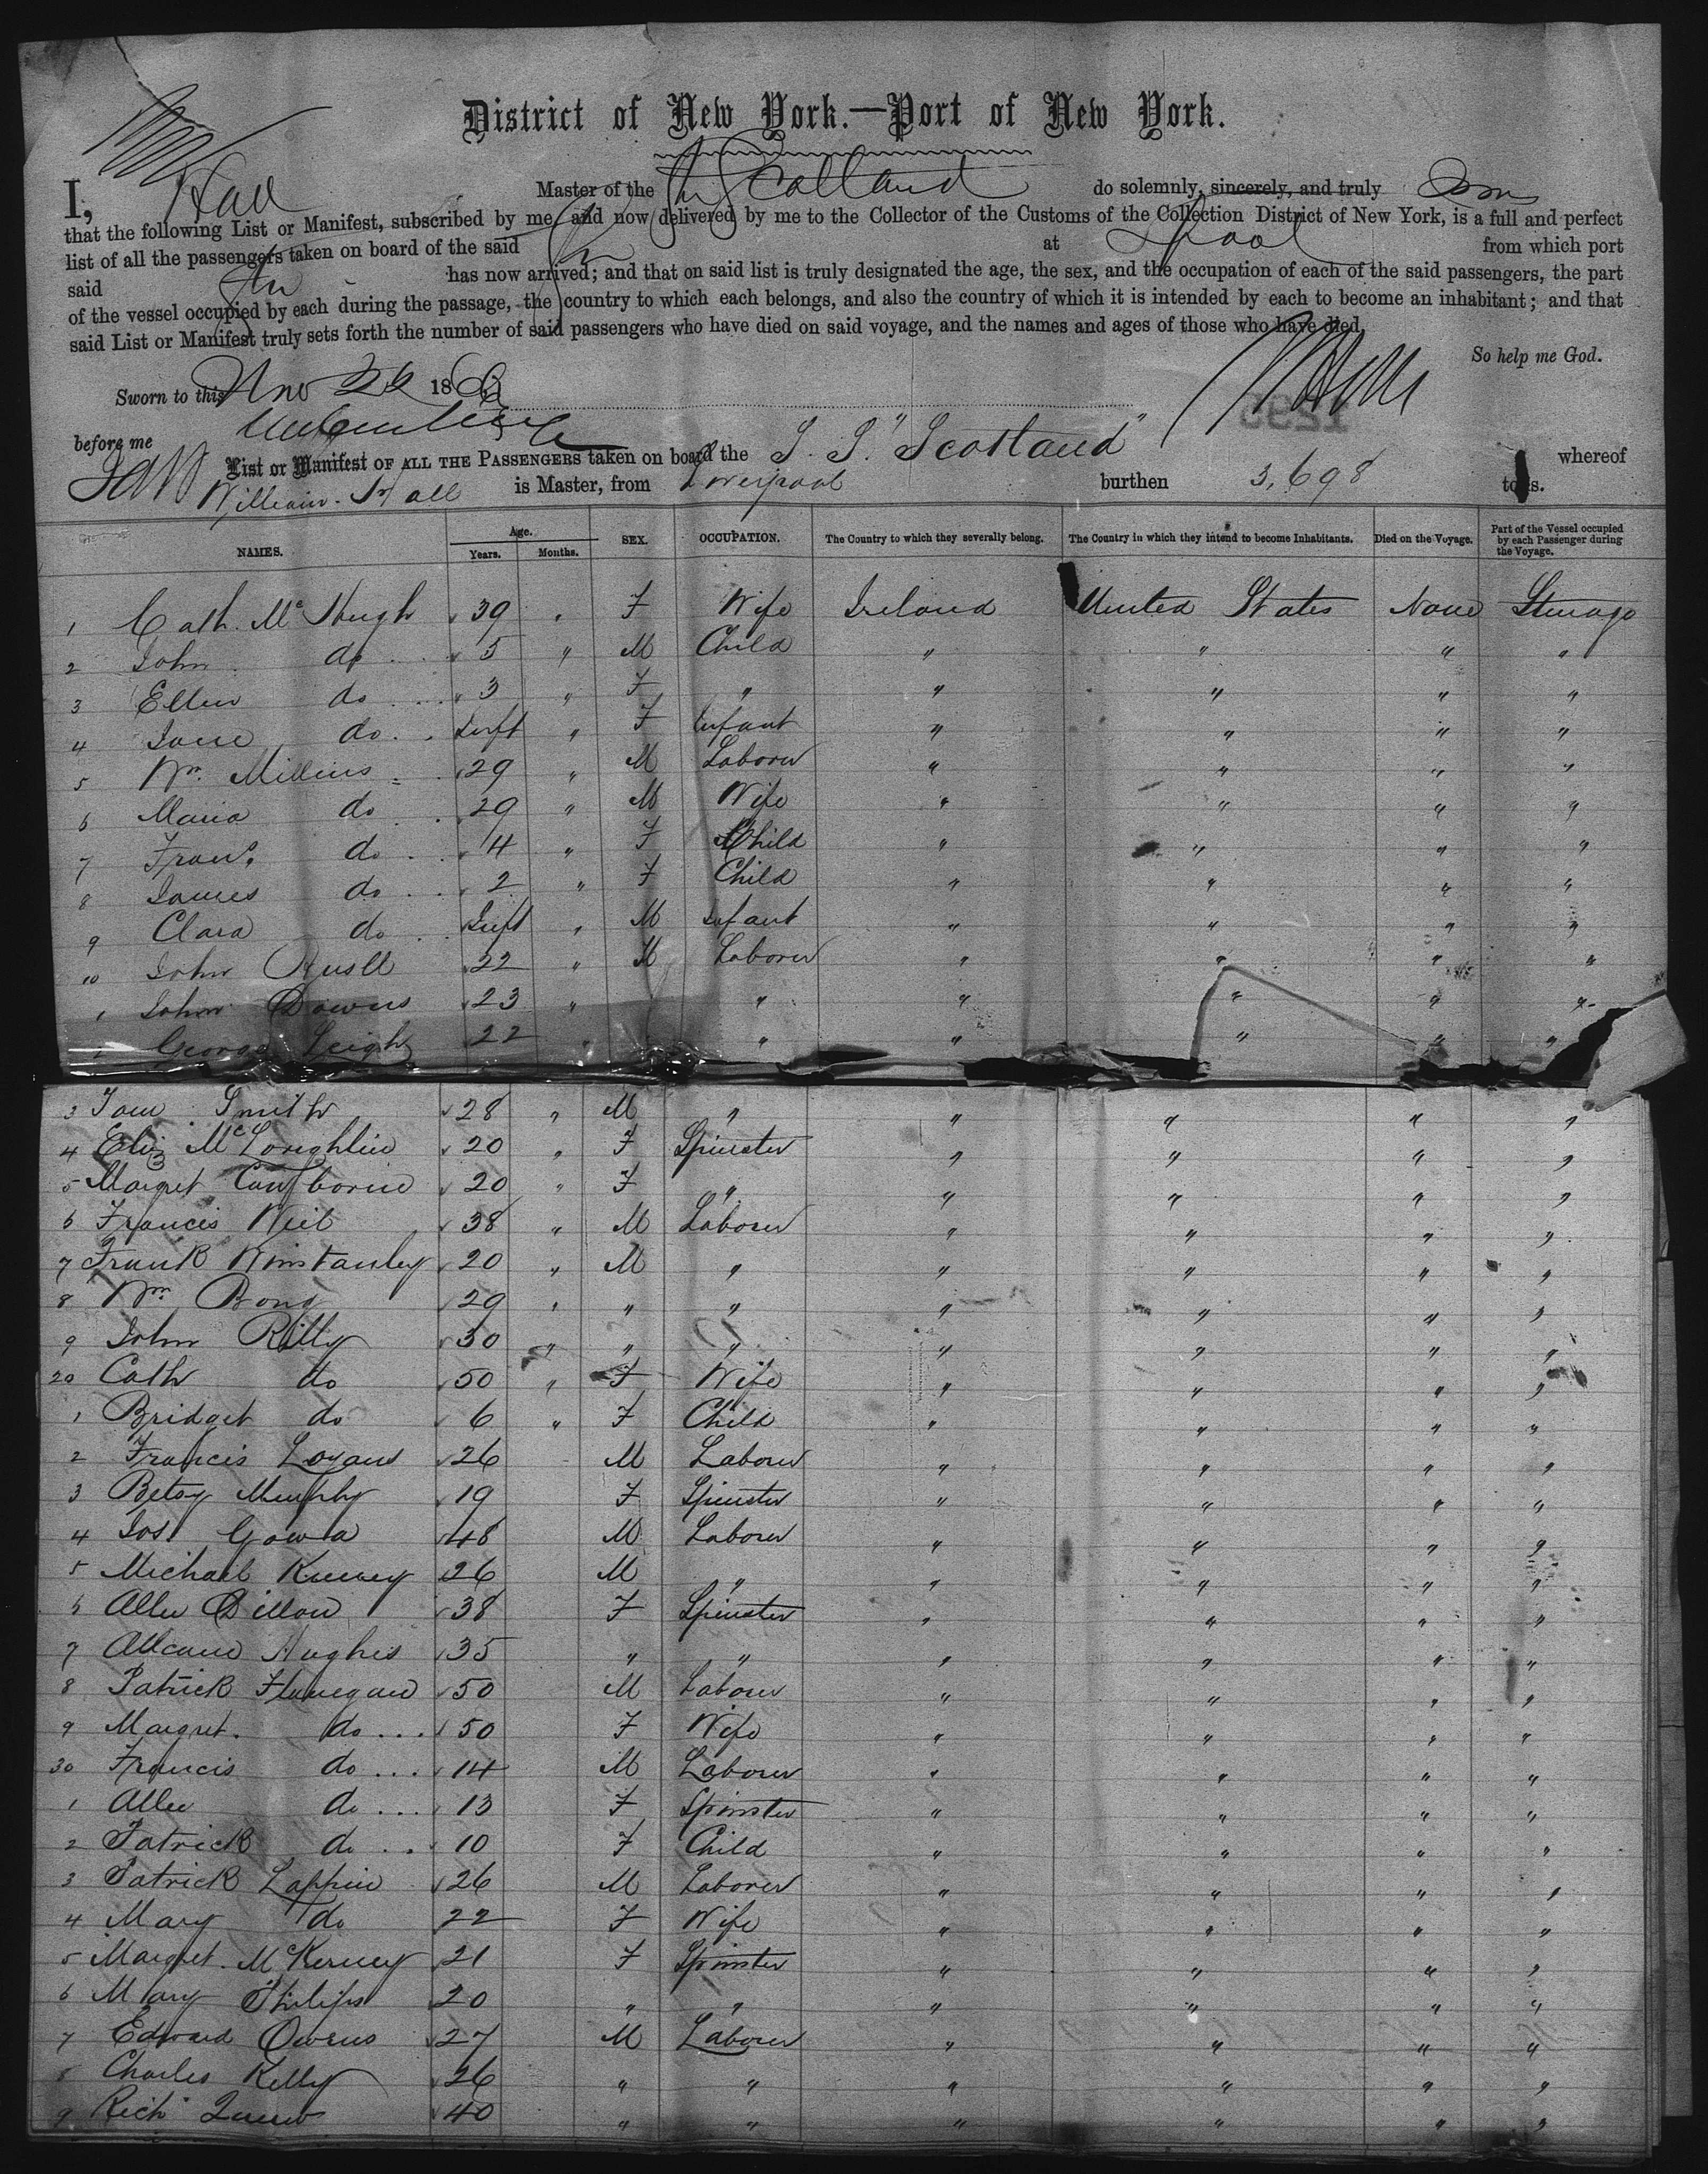 District of New York.—Port of New York.
I, Hall Master of the Str Scotland do solemnly, sincerely, and truly
that the following List or Manifest, subscribed by me, and now delivered by me to the Collector of the Customs of the Collection District of New York, is a full and perfect
list of all the passengers taken on board of the said at Lpool from which port
said Str has now arrived; and that on said list is truly designated the age, the sex, and the occupation of each of the said passengers, the part
of the vessel occupied by each during the passage, the country to which each belongs, and also the country of which it is intended by each to become an inhabitant; and that
said List or Manifest truly sets forth the number of said passengers who have died on said voyage, and the names and ages of those who have died.
So help me God.
Sworn to this Nov 26 186
before me
List or Manifest OF ALL THE PASSENGERS taken on board the S. S. "Scotland" whereof
William Hall is Master, from Liverpool burthen 3,698 tons.
NAMES. Age. Years. Months. SEX. OCCUPATION. The Country to which they severally belong. The Country in which they intend to become Inhabitants. Died on the Voyage. Part of the Vessel occupied by each Passenger during the Voyage.
1 Cath. Mc Hugh 39 " F Wife Ireland United States None Steerage
2 John do 5 " M Child " " " "
3 Ellen do 3 " F " " " " "
4 Jane do Inft " F Infant " " " "
5 Wm. Millins 29 " M Laborer " " " "
6 Maria do 29 " M Wife " " " "
7 Frans. do 4 " F Child " " " "
8 James do 2 " F Child " " " "
9 Clara do Inft " M Infant " " " "
10 John 22 " M Laborer " " " "
1 John Downs 23 " " " " " "
2 George Leigh 22 " " " " " "
3 Tom Smith 28 " M " " " " "
4 Eliz McLoughlin 20 " F Spinster " " " "
5 Margret 20 " F " " " " "
6 Francis Neil 38 " M Laborer " " " "
7 Frank Winstanley 20 " M " " " " "
8 Wm. Bond 29 " " " " " " "
9 John Rilly 50 " " " " " " "
20 Cath do 50 " F Wife " " " "
1 Bridget do 6 " F Child " " " "
2 Francis Logans 26 M Laborer " " " "
3 Betsy Murphy 19 F Spinster " " " "
4 Jos. Gowa 48 M Laborer " " " "
5 Michael 26 M " " " " "
6 Allen Dillon 38 F Spinster " " " "
7 Hughes 35 " " " " " "
8 Patrick Flanegan 50 M Laborer " " " "
9 Margret. do 50 F Wife " " " "
30 Francis do 14 M Laborer " " " "
1 Allen do 13 F Spinster " " " "
2 Patrick do 10 F Child " " " "
3 Patrick Lappin 26 M Laborer " " " "
4 Mary do 22 F Wife " " " "
5 Margret. McKerney 21 F Spinster " " " "
6 Mary Philips 20 " " " " " "
7 Edward Owens 27 M Laborer " " " "
8 Charles Kelly 26 " " " " " "
9 Rich Quinn 40 " " " " " "